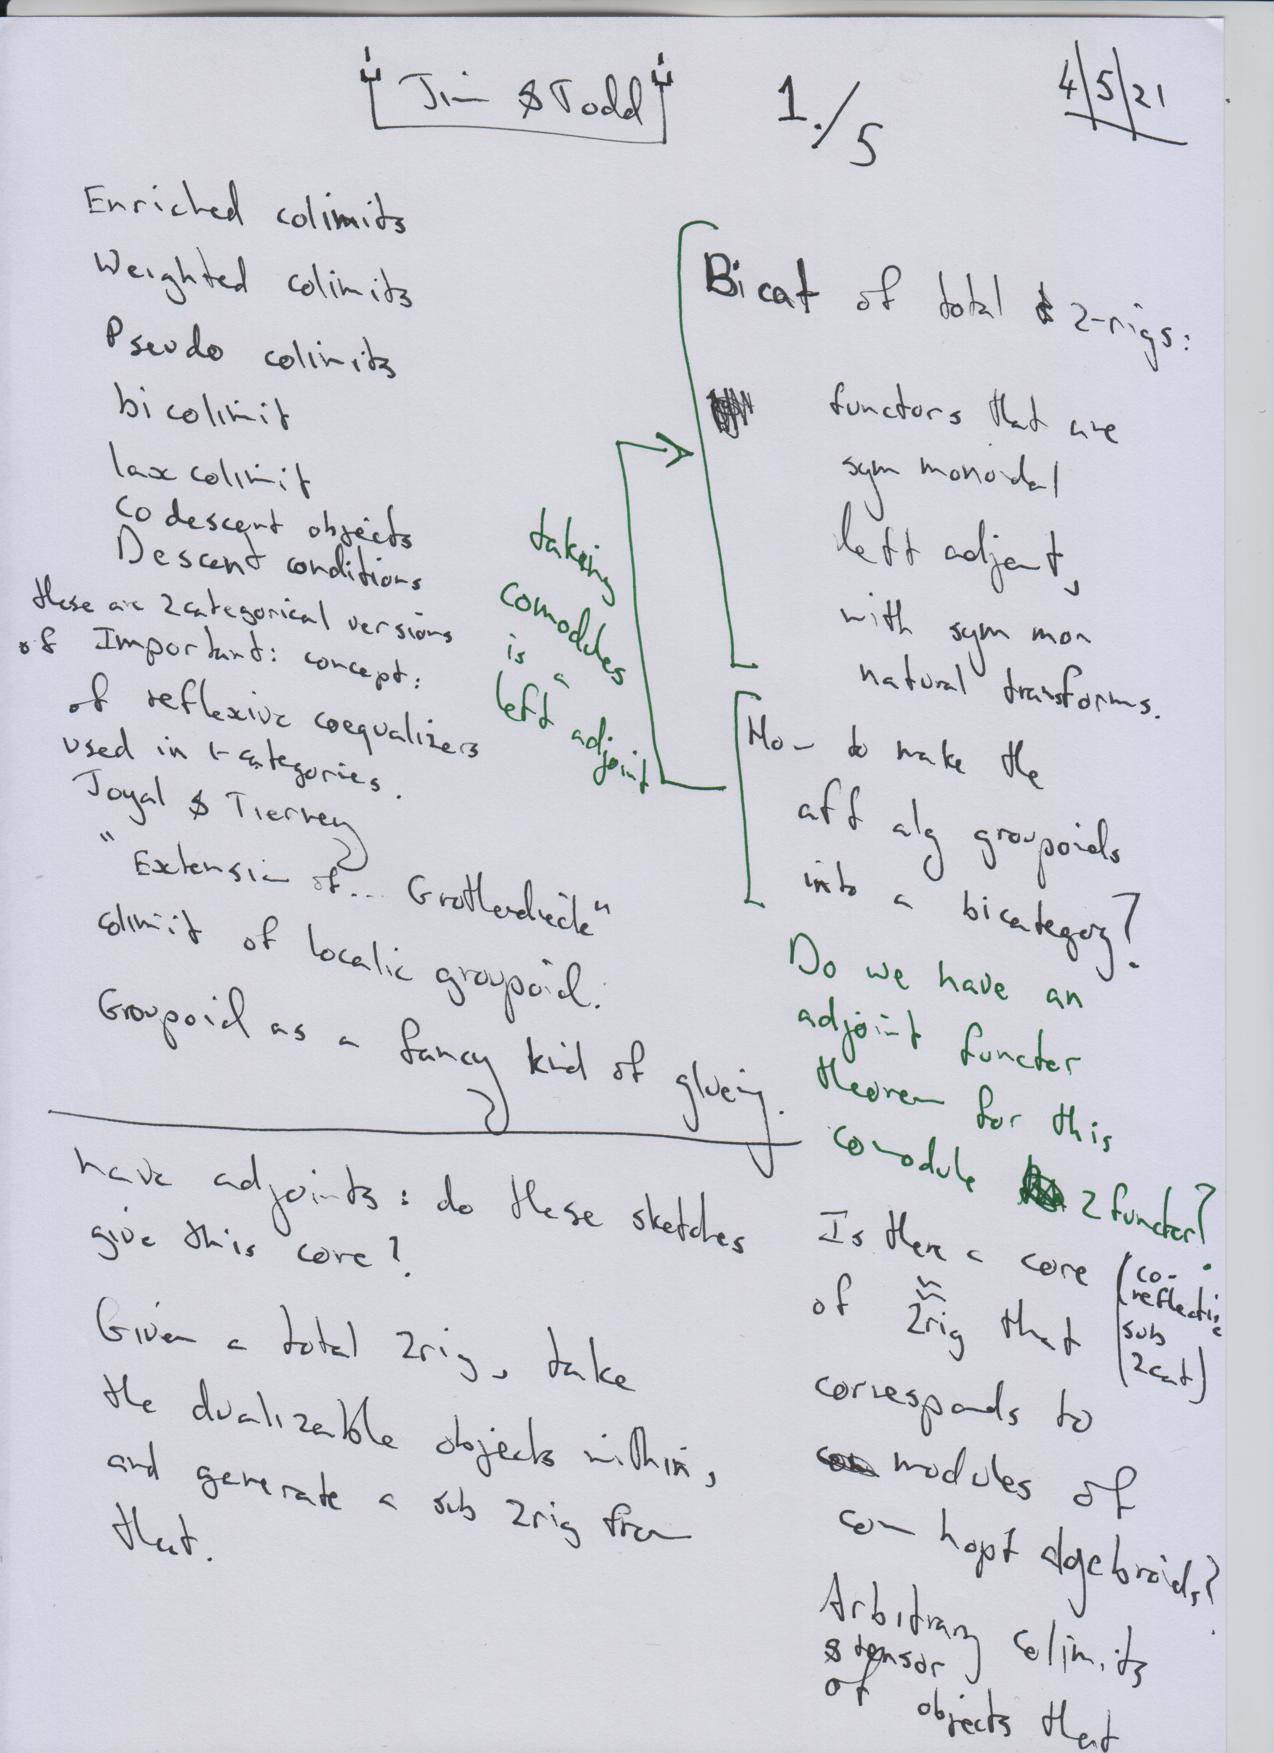 Jim & Todd
1./5
4/5/21
Enriched colimits
Weighted colimits
Pseudo colimits
bicolimit
lax colimit
co descent objects
Descent conditions
these are 2 categorical versions
of Important: concept:
of reflexive coequalizers
used in 1-categories.
Joyal & Tierney
"Extension of... Grothendieck"
colimit of localic groupoid.
Groupoid as a fancy kind of glueing.
taking
comodules
is
a
left adjoint
Bicat of total 2-rigs:
functors that are
sym monoidal
left adjoint,
with sym mon
natural transforms.
How to make the
aff alg groupoids
into a bicategory?
Do we have an
adjoint functor
theorem for this
comodule 2 functor?
Is there a core (co-
reflective
sub
2cat)
of 2rig that
corresponds to
modules of
com hopf algebroids?
Arbitrary colimits
& tensor
of objects that
have adjoints: do these sketches
give this core?
Given a total 2rig, take
the dualizable objects within,
and generate a sub 2rig from
that.